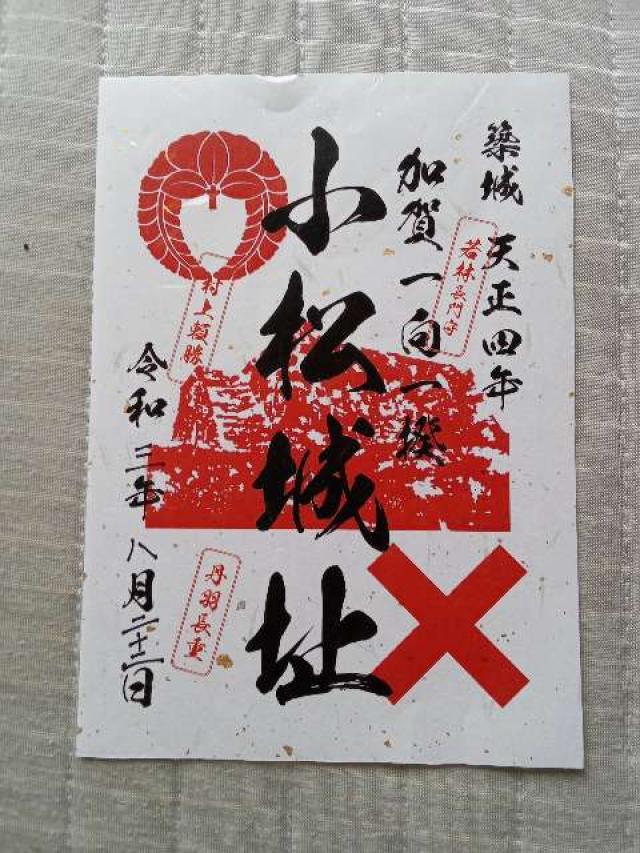 築城 天正四年
若林長門守
加賀一向一揆
小松城址
村上頼勝
丹羽長重
令和三年八月二十二日